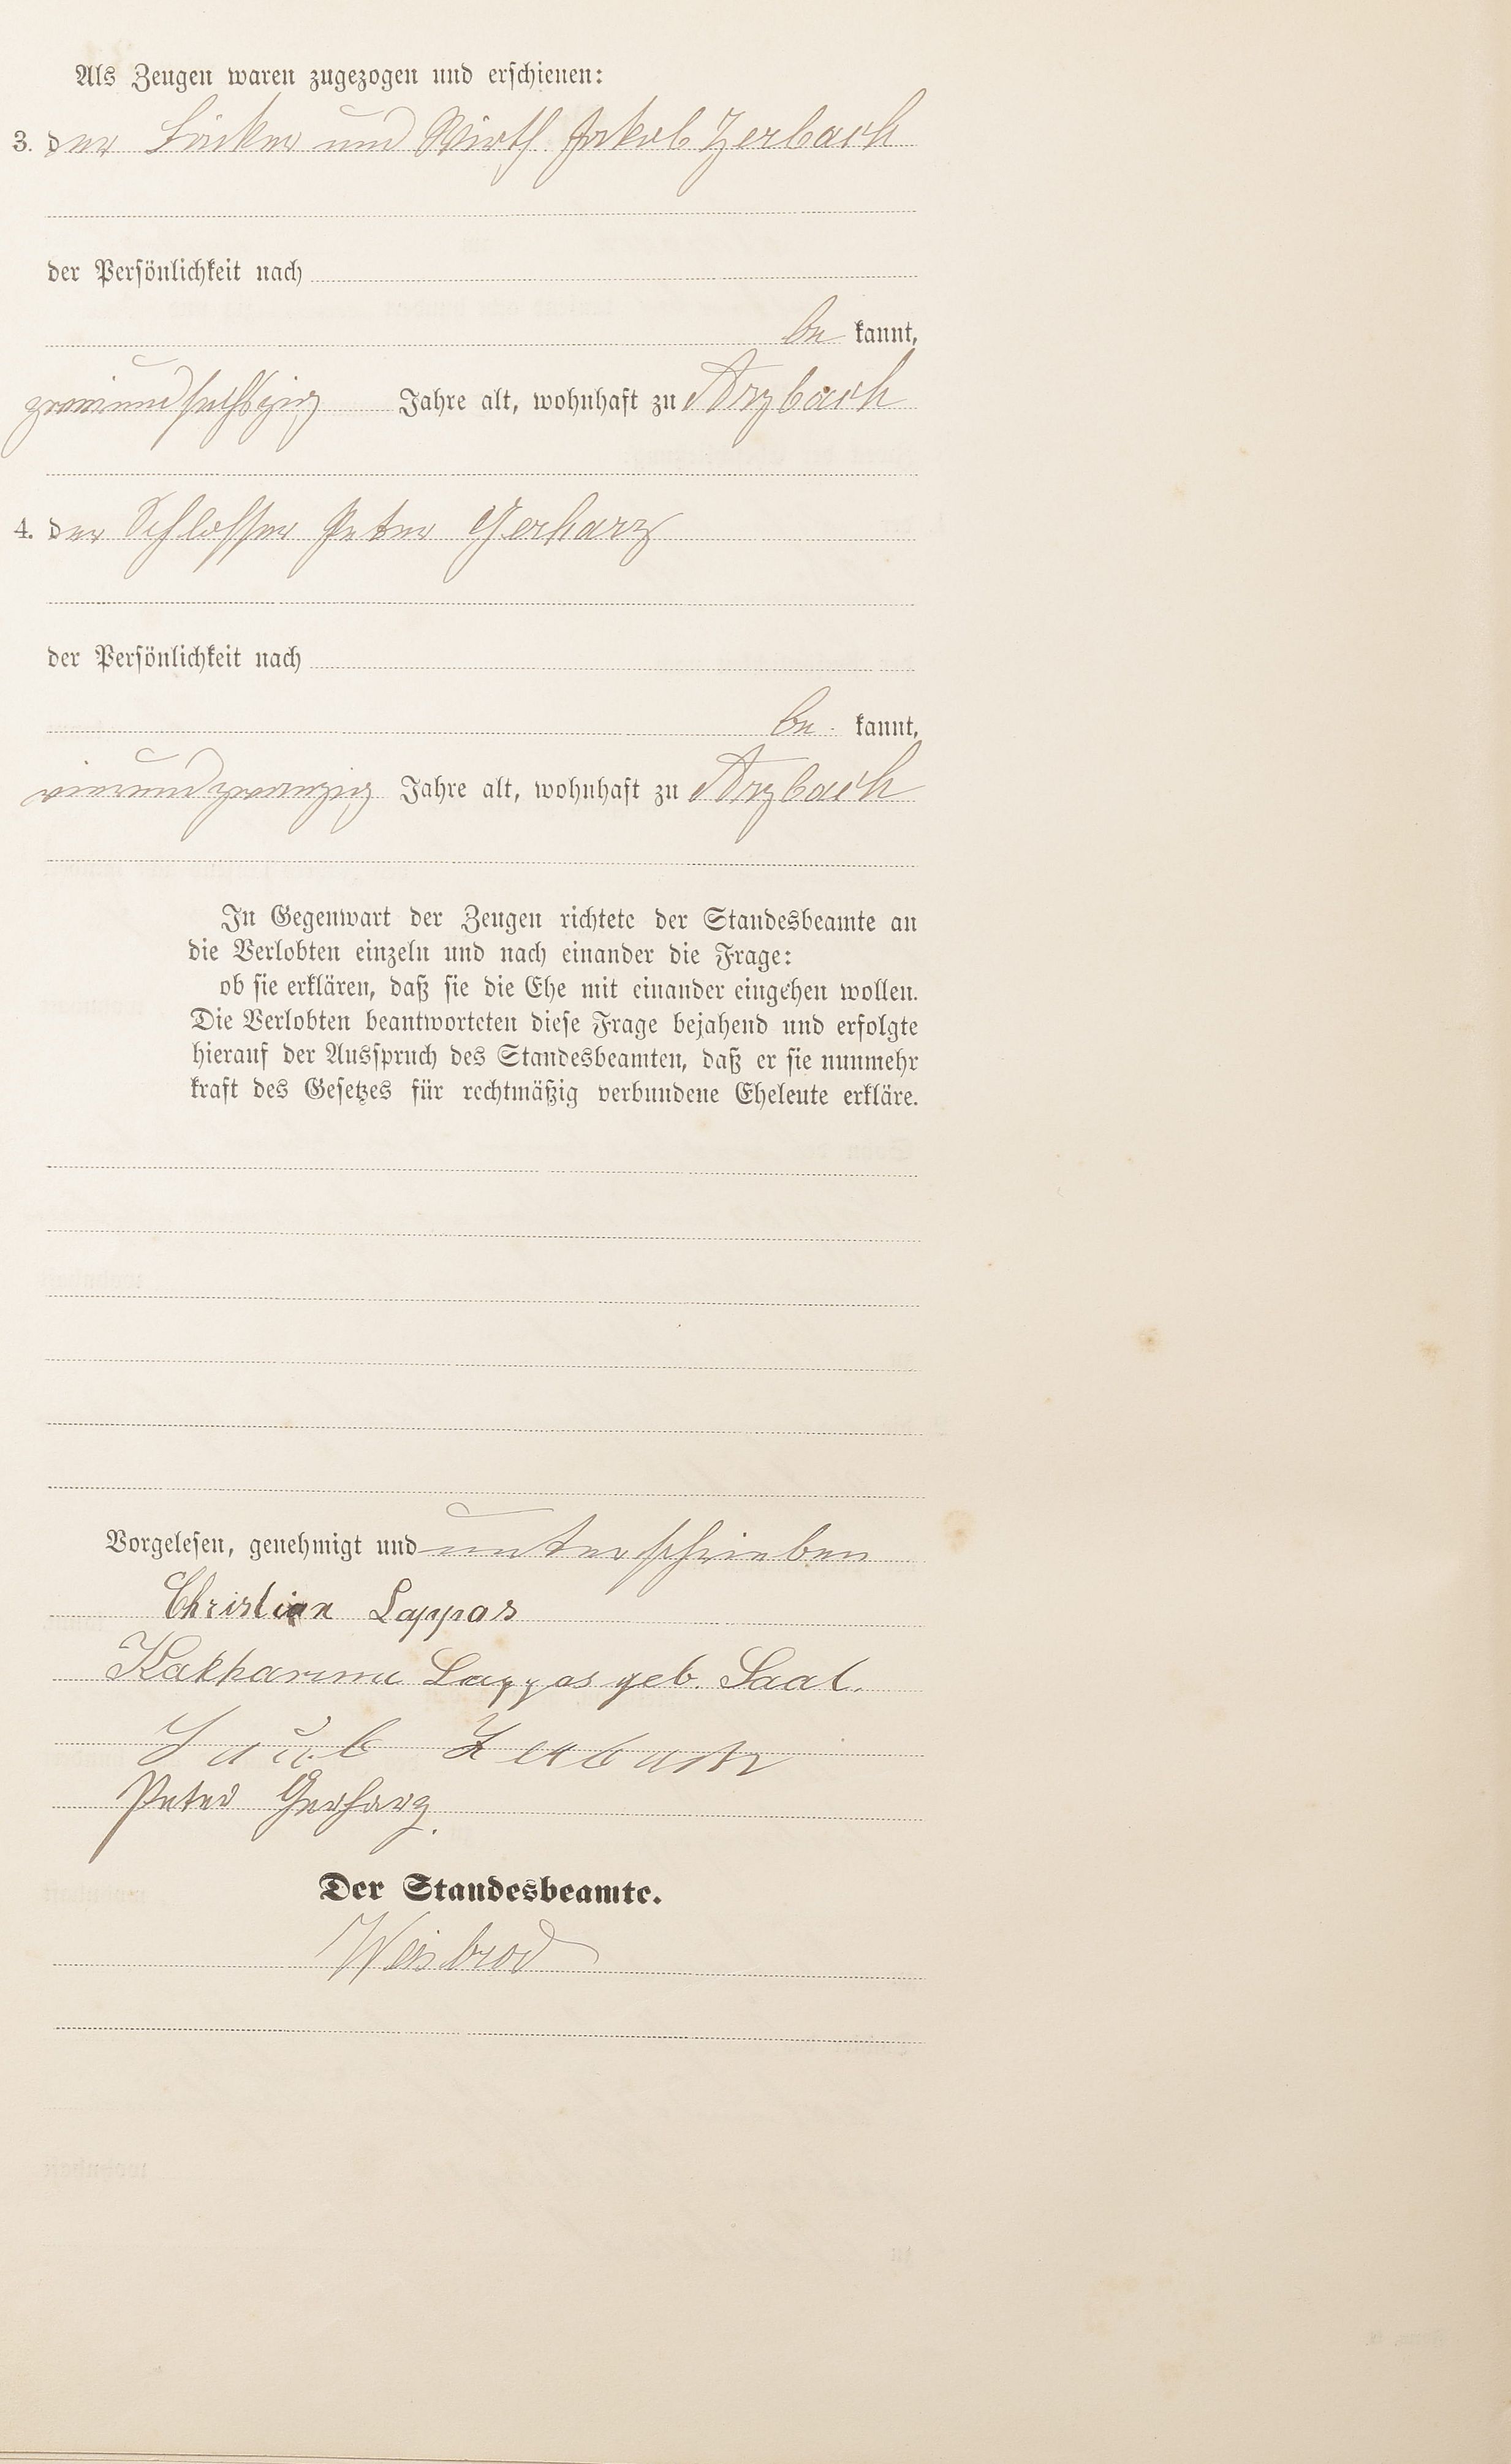 Als Zeugen waren zugezogen und erschienen:
3. der Bäcker und Wirth Jakob Zerbach
der Persönlichkeit nach
be kannt,
zweiundsechszig Jahre alt, wohnhaft zu Arzbach
4. der Schlosser Peter Gerharz
der Persönlichkeit nach
be kannt,
vierundzwanzig Jahre alt, wohnhaft zu Arzbach
In Gegenwart der Zeugen richtete der Standesbeamte an
die Verlobten einzeln und nach einander die Frage:
ob sie erklären, daß sie die Ehe mit einander eingehen wollen.
Die Verlobten beantworteten diese Frage bejahend und erfolgte
hierauf der Ausspruch des Standesbeamten, daß er sie nunmehr
kraft des Gesetzes für rechtmäßig verbundene Eheleute erkläre.
Vorgelesen, genehmigt und unterschrieben
Christian Lappas
Katharina Lappas geb. Saal.
Zerbach
Peter Gerharz.
Der Standesbeamte.
Weisbrod